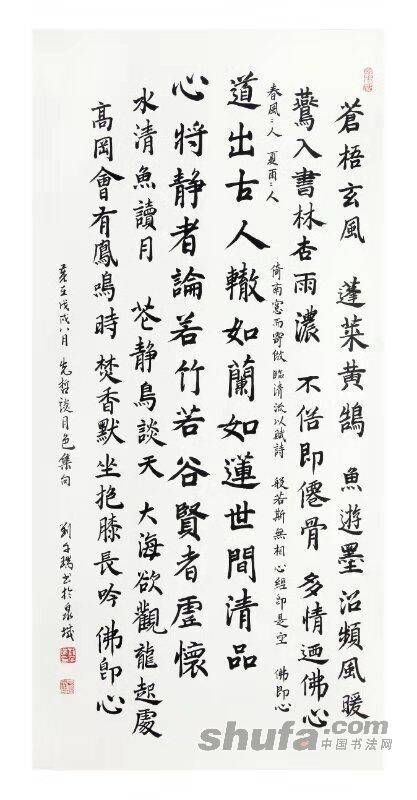 蒼梧玄風 蓬萊黄鵠 魚遊墨沼頻風暖
鷰入書林杏雨濃 不俗即僊骨 多情迺佛心
春風〻人 夏雨〻人 倚南窓而寄傲 臨清流以賦詩 般若斯無相心經即是空 佛即心
道出古人轍如蘭如蓮世間清品
心將静者論若竹若谷賢者虛懷
水清魚讀月 花静鳥談天 大海欲觀龍起處
髙岡會有鳳鳴時 焚香默坐 抱膝長吟 佛即心
戊戌八月 先哲 集句
劉 书於泉城
shufa.com
中国书法网